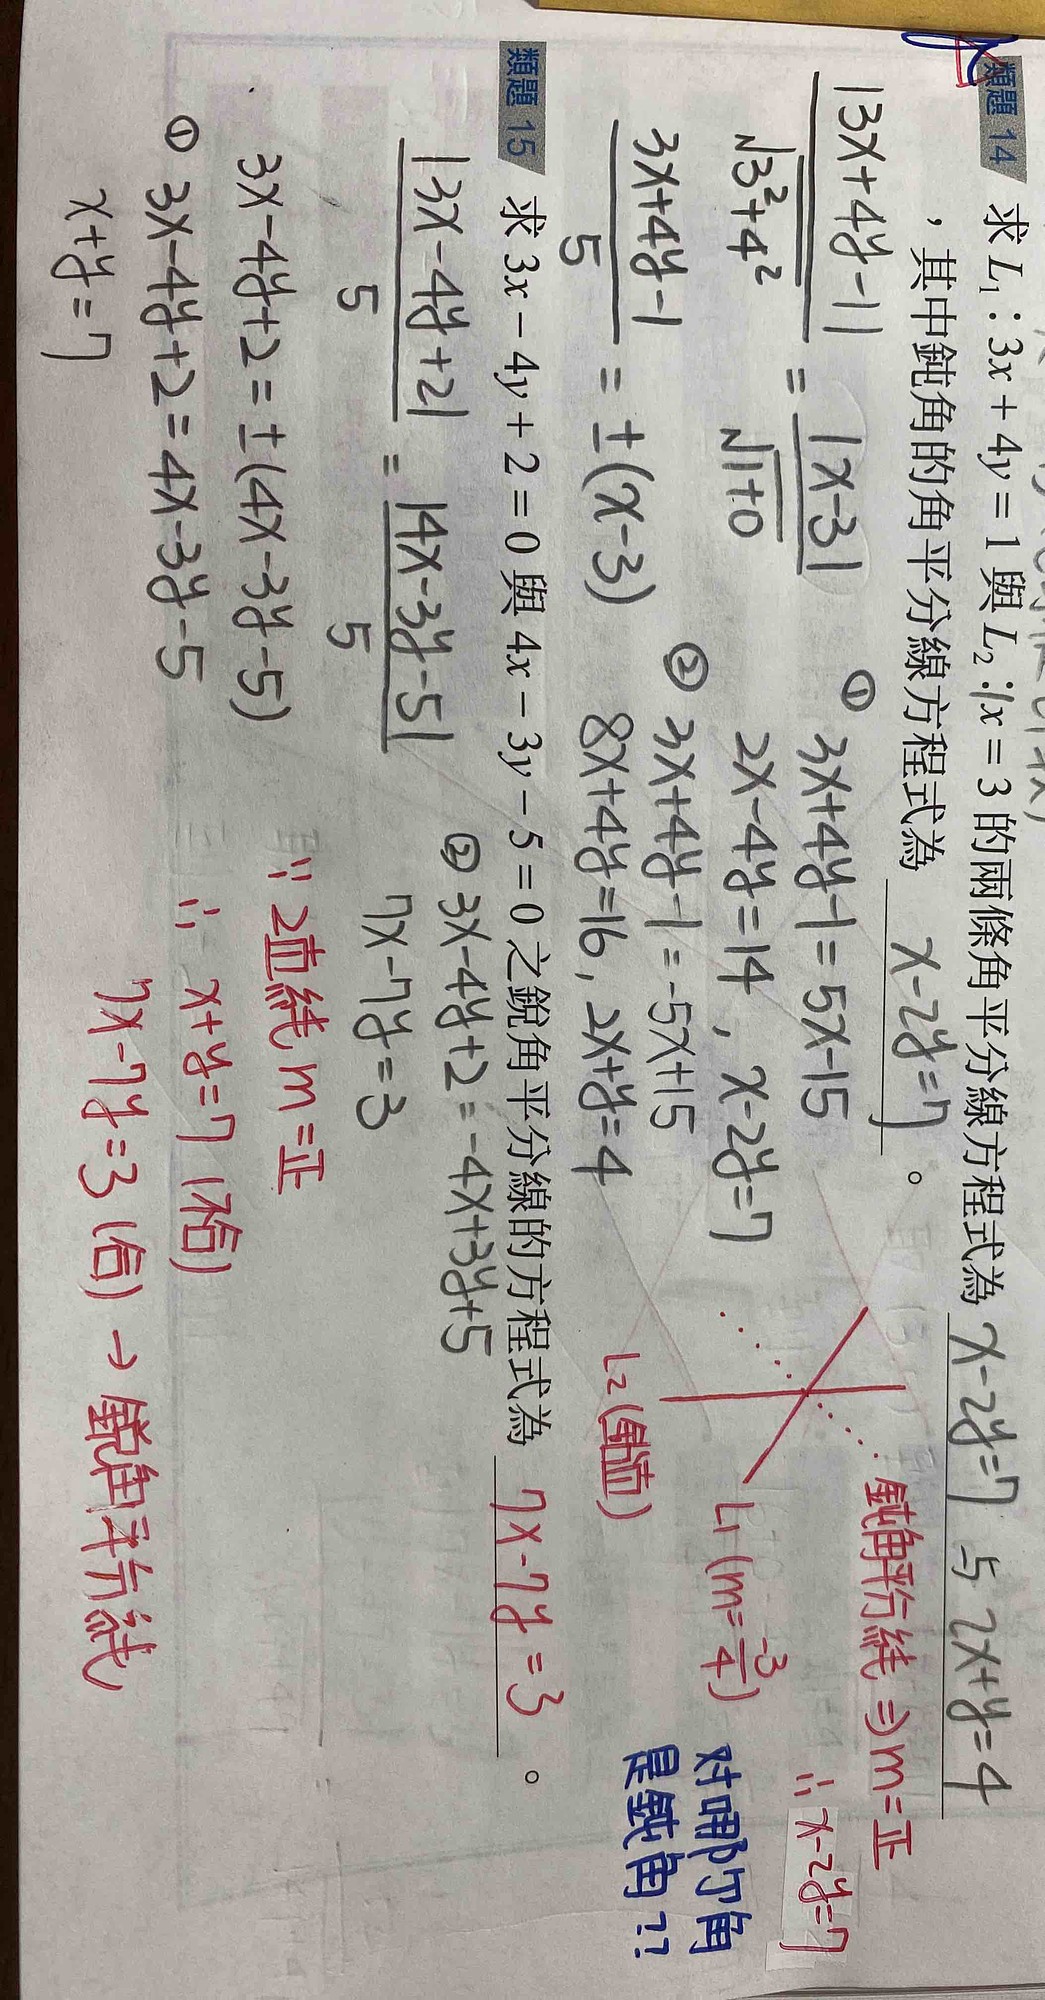 類題 14 求 L₁:3x+4y=1 與 L₂:x=3 的兩條角平分線方程式為 x-2y=7 5 2x+y=4
，其中鈍角的角平分線方程式為 x-2y=7 。
|3x+4y-1| / √3²+4² = |x-3| / √1+0
3x+4y-1 / 5 = ±(x-3)
① 3x+4y-1=5x-15
2x-4y=14，x-2y=7
② 3x+4y-1=-5x+15
8x+4y=16，2x+y=4
鈍角平分線⇒m=正
∴x-2y=7
L₁(m=-3/4)
L₂(鉛直)
対哪丁角
是鈍角??
類題 15 求 3x-4y+2=0 與 4x-3y-5=0 之銳角平分線的方程式為 7x-7y=3 。
|3x-4y+2| / 5 = |4x-3y-5| / 5
3x-4y+2=±(4x-3y-5)
① 3x-4y+2=4x-3y-5
x+y=7
② 3x-4y+2=-4x+3y+5
7x-7y=3
∵2直線m=正
∴x+y=7(不合)
7x-7y=3(合)→銳角平分線